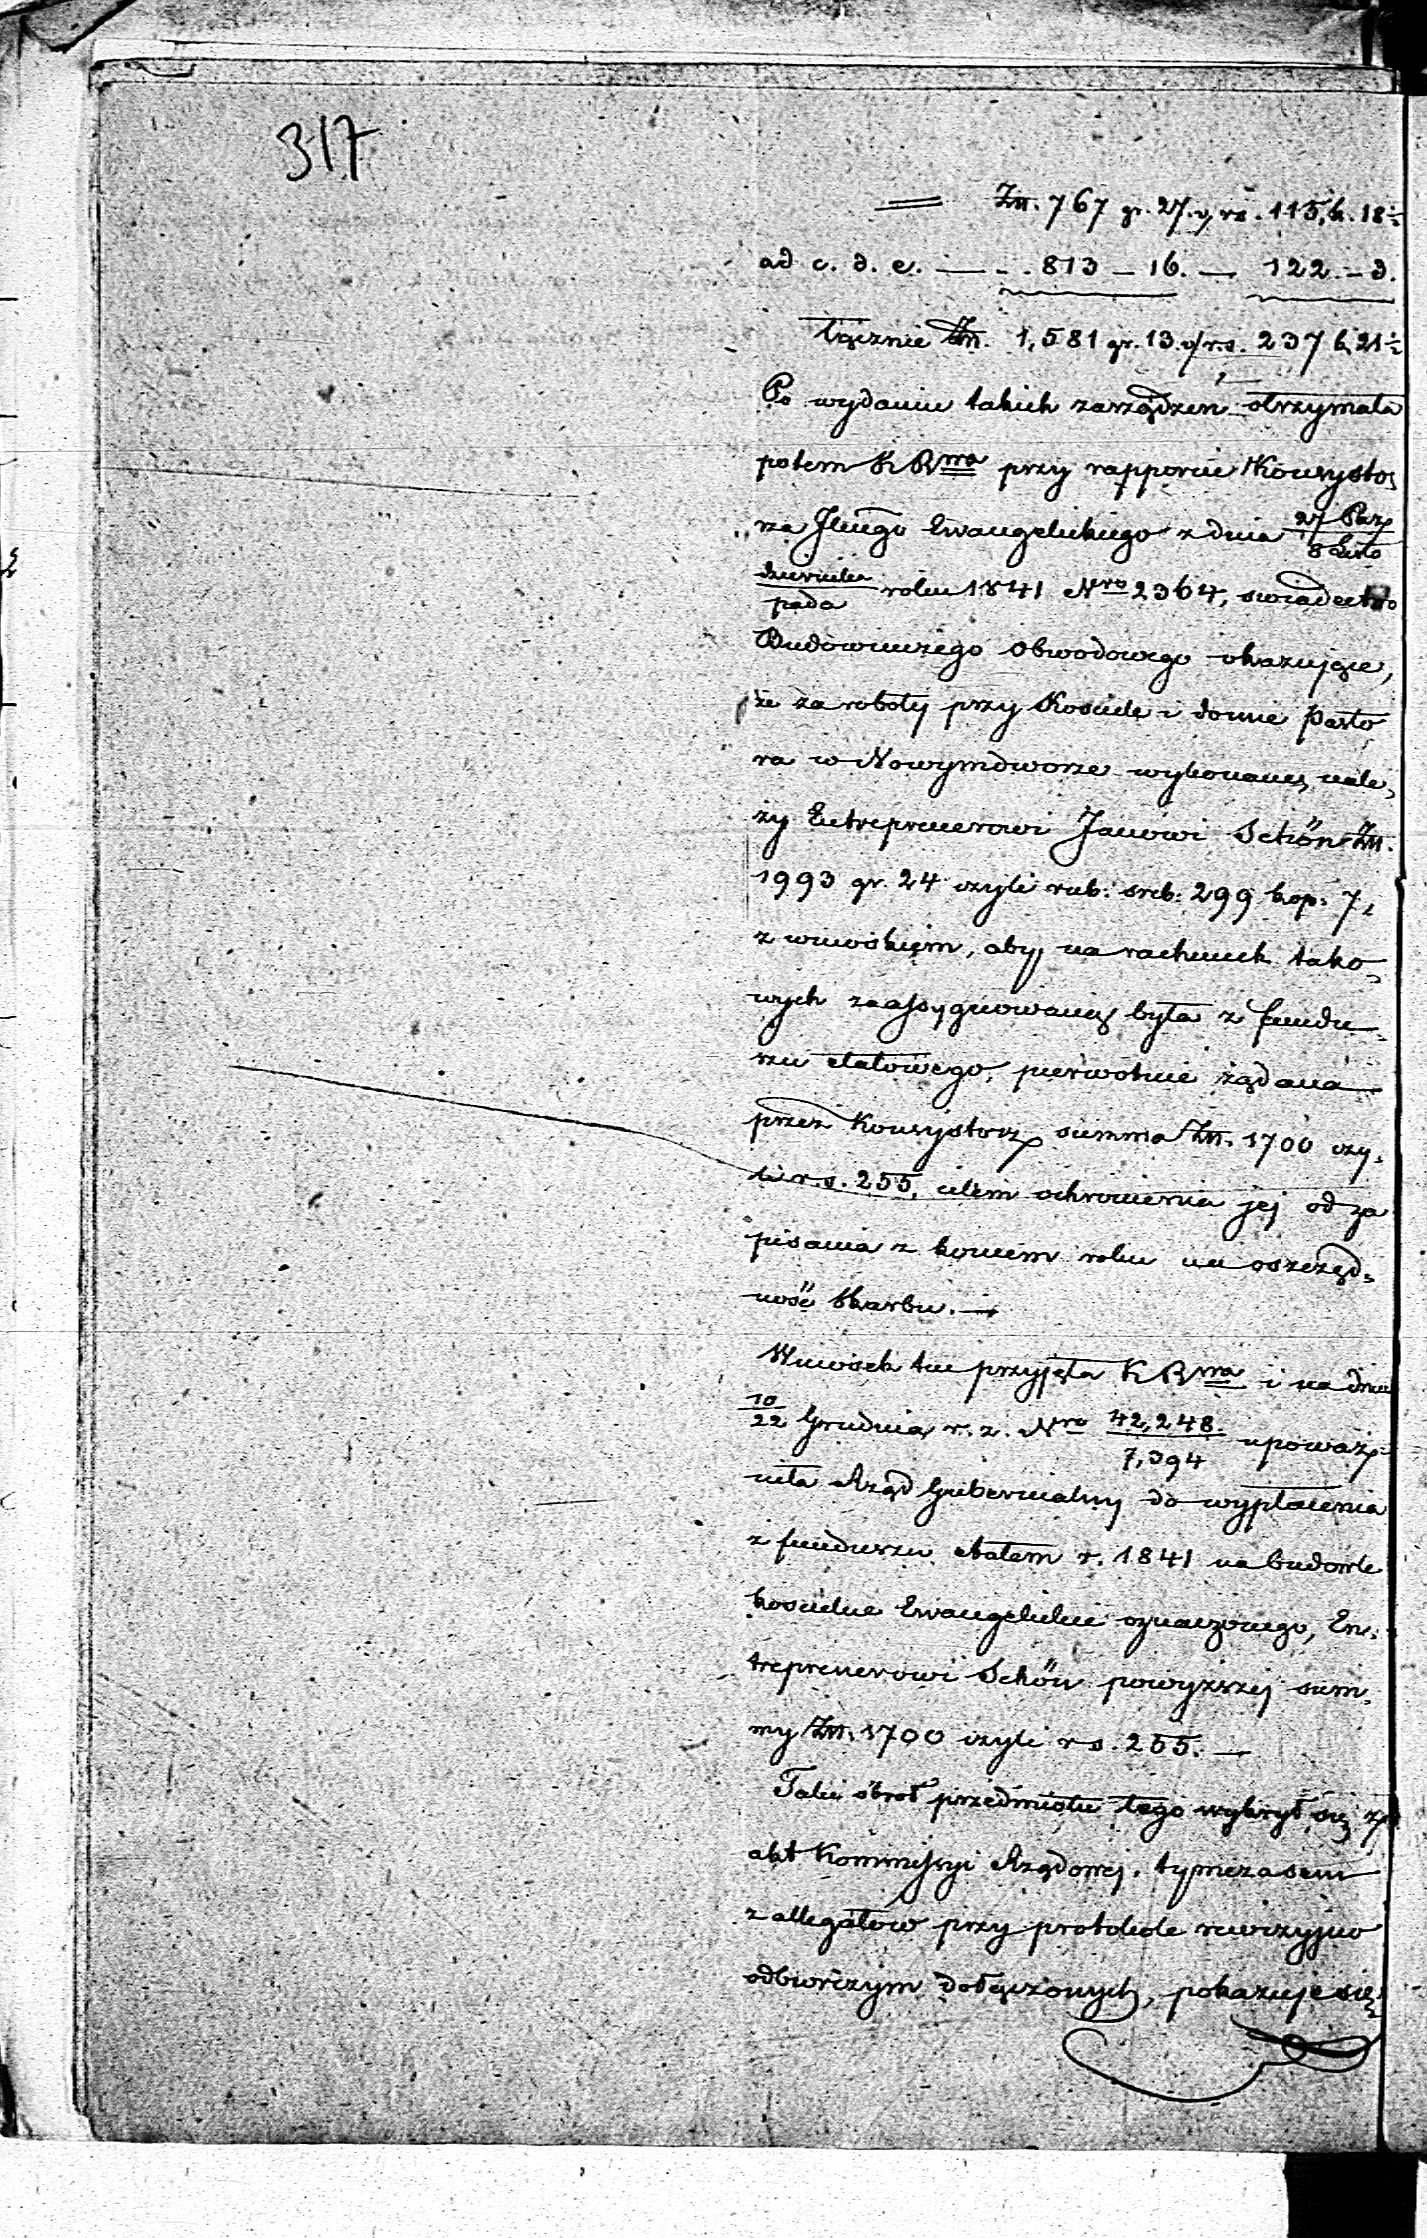 317
= Złt. 767 gr. 27. v. rs. 115, k. 18½
ad c. d. e. — . . 813 — 16. — 122. — 3.
łącznie Złt. 1,581 gr. 13. v/ rs. 237 k 21½
Po wydaniu takich zarządzeń otrzymała
potem K R wa przy rapporcie Konsystor
rza Jlnego Ewangelickiego z dnia 27 Paź/8 Listo
dziernika/pada roku 1841 Nro 2364, swiadectwo
Budowniczego Obwodowego okazujące,
że za roboty przy Kosciele i domie Pasto
ra w Nowymdworze wykonane, nale,
ży Entreprenerowi Janowi Schön Złt.
1993 gr. 24 czyli rub: sreb: 299 kop: 7,
z wnioskiem, aby na rachunek tako,
wych zaassygnowaną była z fundu,
szu etatowego, pierwotnie żądana
przez Konsystorz summa Złt. 1700 czy,
li r. s. 255, celem ochronienia jej od za
pisania z koncem roku na oszczęd,
ność Skarbu. —
Wniosek ten przyjęła K R wa i na dniu
10/22 Grudnia r. z. Nro 42,248./7,394 upoważ
niła Rząd Gubernialny do wypłacenia
z funduszu etatem r. 1841 na budowle
kościelne Ewangelickie oznaczonego, En,
treprenerowi Schön powyższej sum,
my Złt. 1700 czyli r s. 255. —
Taki obrot przedmiotu tego wykrył się z
akt Kommissyi Rządowej, tymczasem
z allegatów przy protokole rewizyjno
odbiorczym dołączonych, pokazuje się